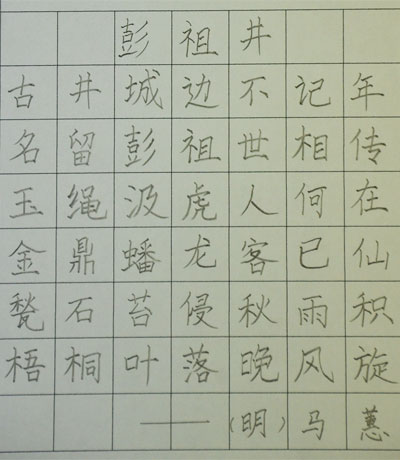 彭祖井
古井城边不记年
名留彭祖世相传
玉绳汲虎人何在
金鼎蟠龙客已仙
甃石苔侵秋雨积
梧桐叶落晚风旋
——（明）马蕙